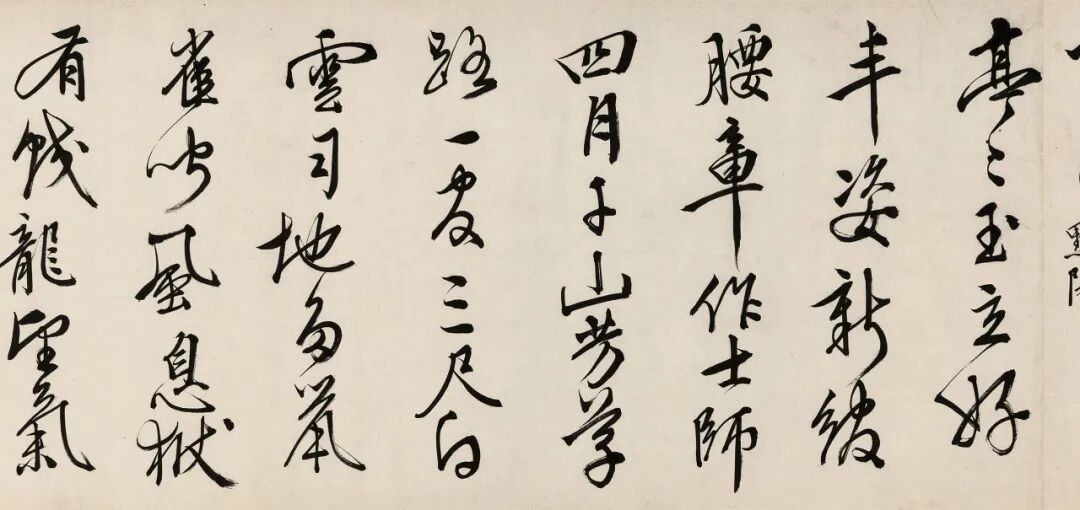 亭〻玉立好
丰姿新綬
腰章作士師
四月千山芳草
路一三尺白
雲司地多鼠
雀聞風息獄
有錢龍望氣